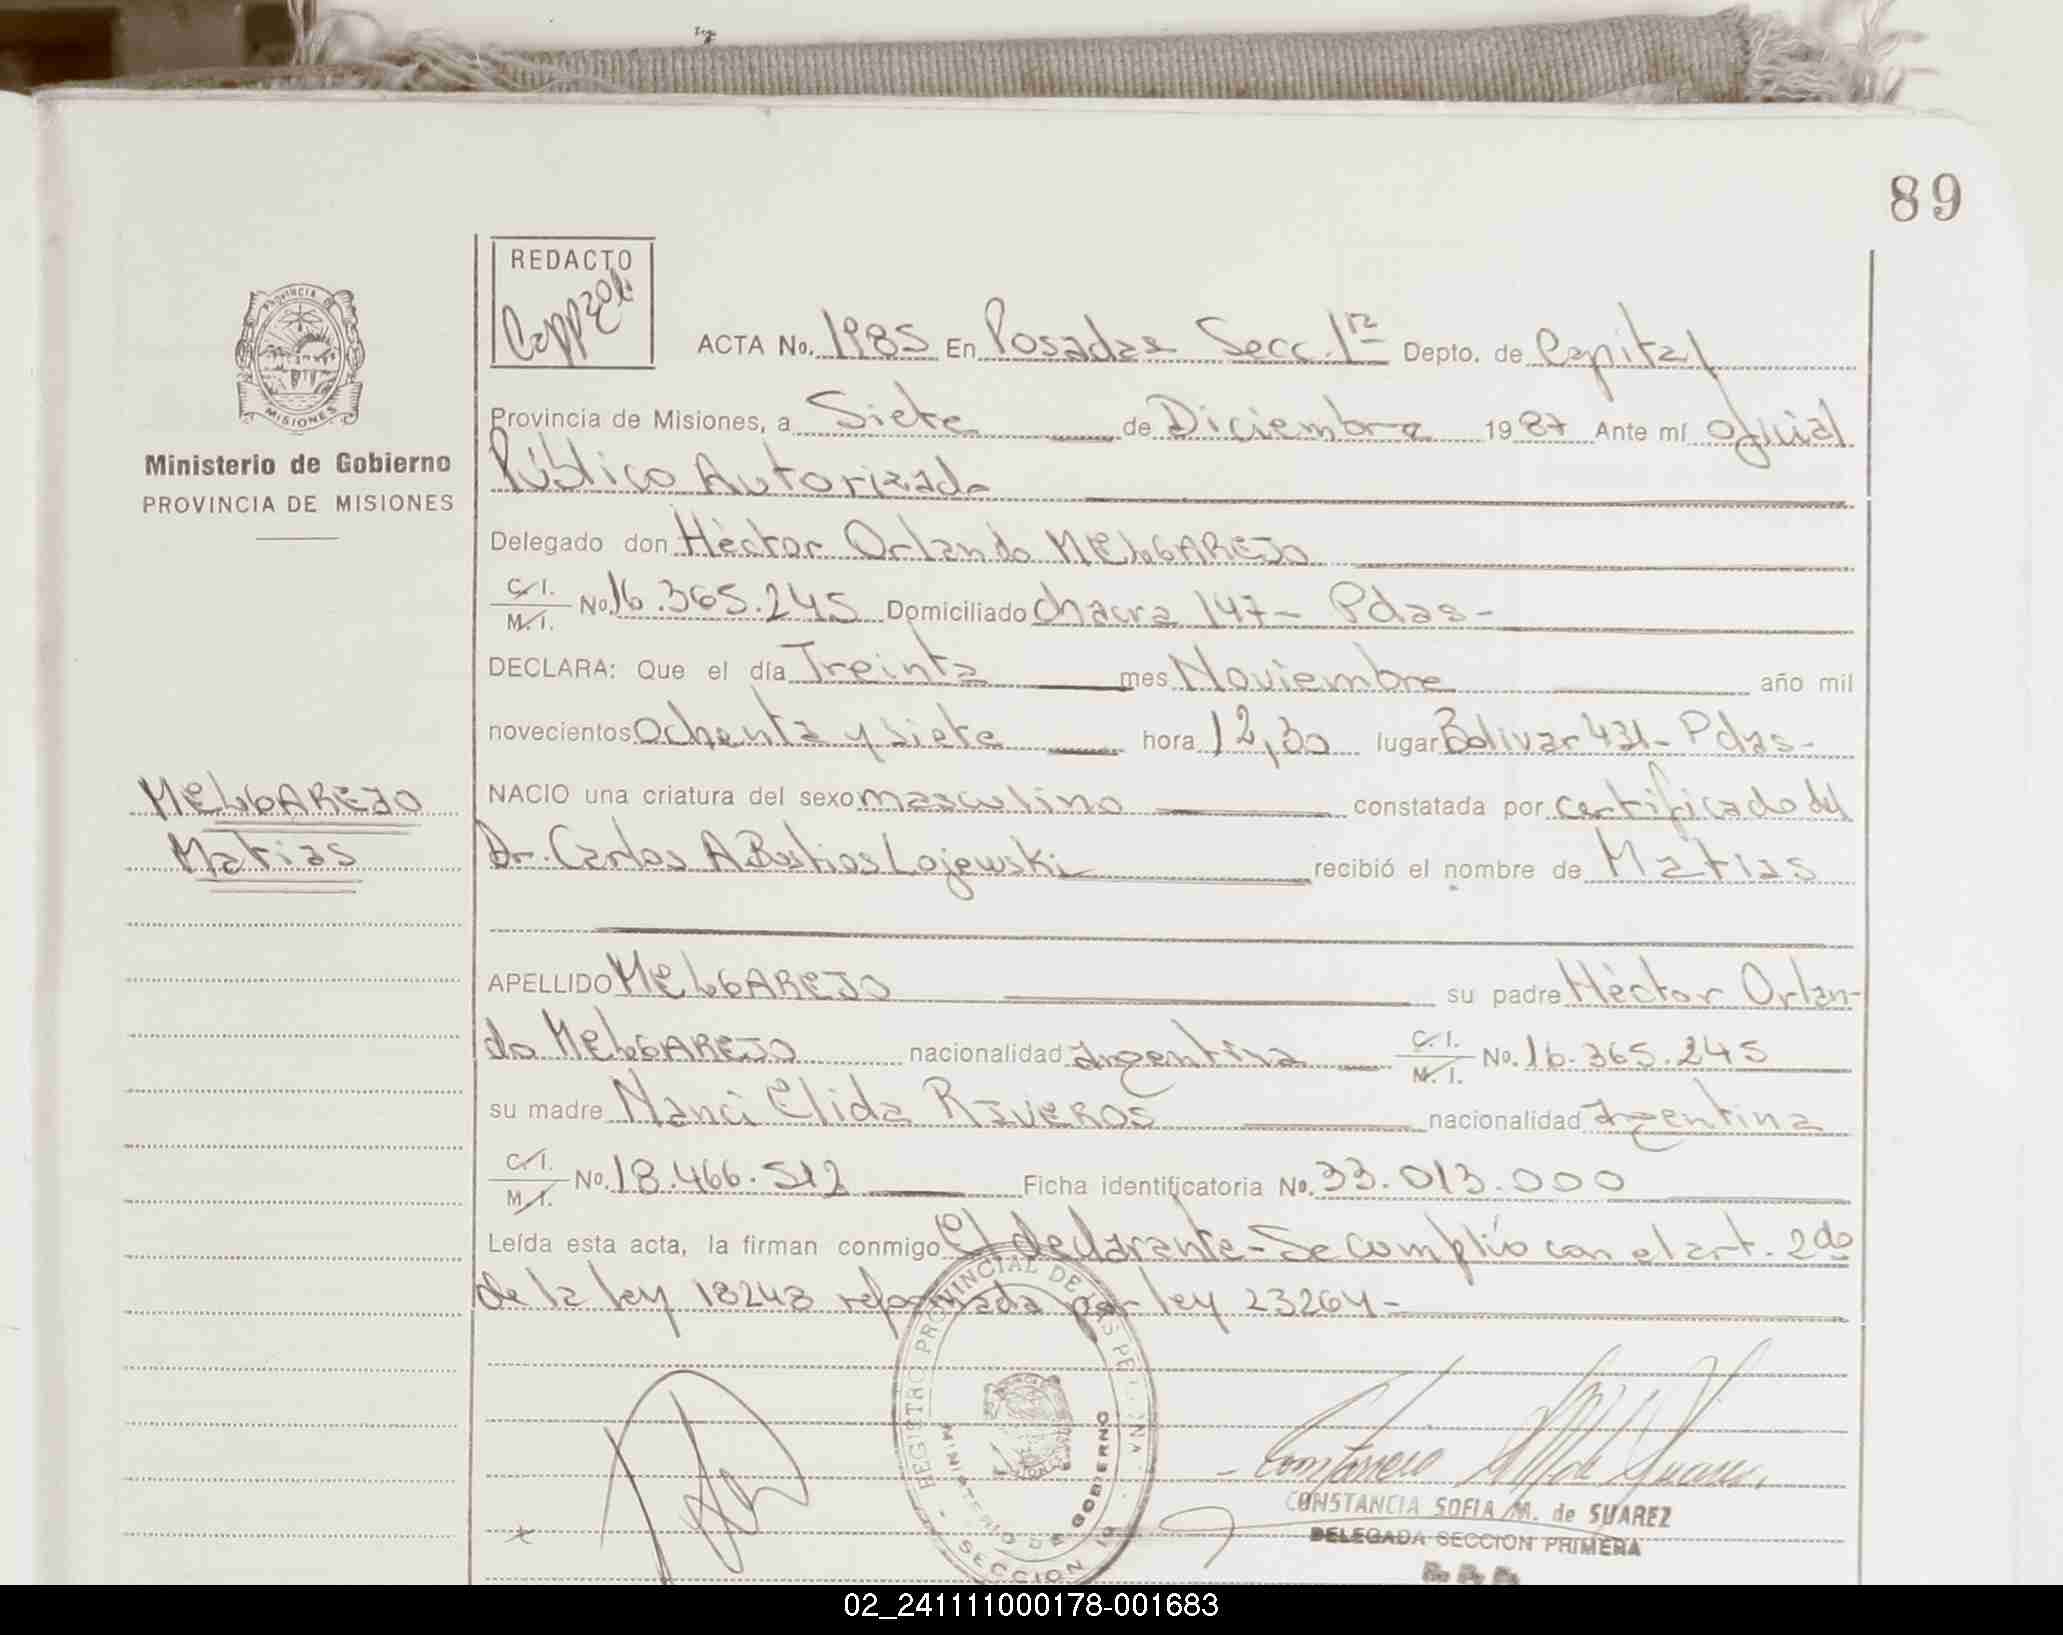 89
REDACTO
Coppzoli
ACTA No. 1985 En Posadas Secc. 1ra Depto. de Capital
Provincia de Misiones, a Siete de Diciembre 1987 Ante mí oficial
Público Autorizado
PROVINCIA DE
MISIONES
Ministerio de Gobierno
PROVINCIA DE MISIONES
Delegado don Héctor Orlando MELGAREJO
C.I. M.I. No. 16.365.245 Domiciliado chacra 147- Pdas-
DECLARA: Que el día Treinta mes Noviembre año mil
novecientos ochenta y siete hora 12,30 lugar Bolivar 431- Pdas-
NACIO una criatura del sexo masculino constatada por certificado del
Dr. Carlos A Bustios Lojewski recibió el nombre de Matias
MELGAREJO
Matias
APELLIDO MELGAREJO su padre Héctor Orlan-
do MELGAREJO nacionalidad argentina C.I. M.I. No. 16.365.245
su madre Nanci Elida RIVEROS nacionalidad argentina
C.I. M.I. No. 18.466.512 Ficha identificatoria No. 33.013.000
Leída esta acta, la firman conmigo El declarante- Se cumplío con el art. 2do
de la ley 18248 reformada por ley 23264-
REGISTRO PROVINCIAL DE LAS PERSONAS
MINISTERIO DE GOBIERNO
SECCION 1a
CONSTANCIA SOFIA M. de SUAREZ
DELEGADA SECCION PRIMERA
02_241111000178-001683